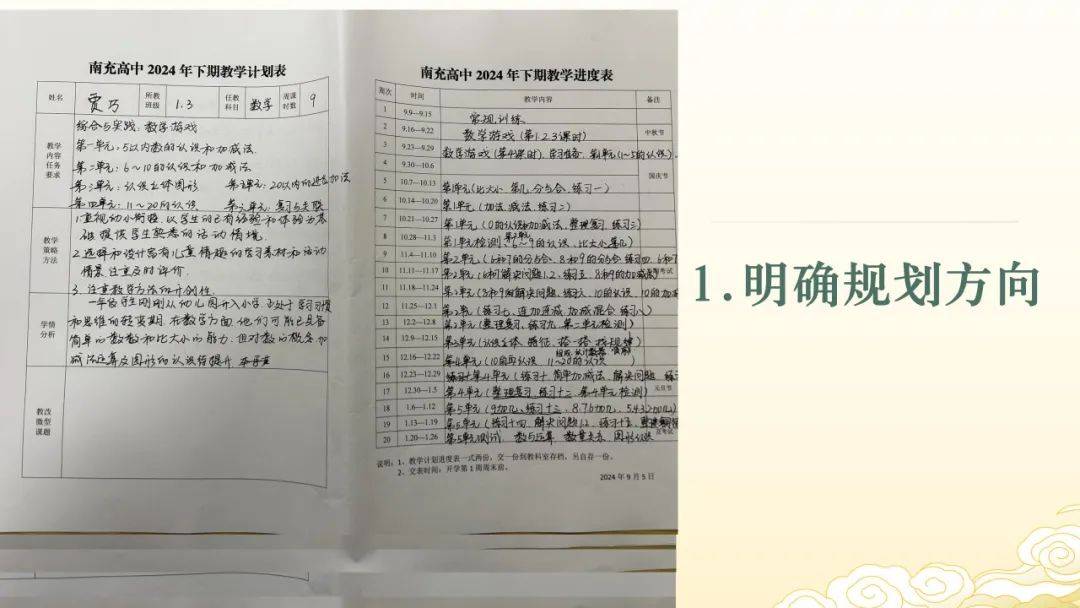 南充高中 2024 年下期教学计划表
姓名 贾巧 所教班级 1.3 任教科目 数学 周课时数 9
教学内容任务要求
综合与实践:数学游戏
第一单元:5以内数的认识和加减法
第二单元:6~10的认识和加减法
第三单元:认识立体图形 第五单元:20以内的进位加法
第四单元:11~20的认识 第六单元:复习与关联
教学策略方法
1.重视幼小衔接,以学生的已有经验和体验为基
础提供学生熟悉的活动情境.
2.选择和设计富有儿童情趣的学习素材和活动
情景 注重及时评价.
3.注重教学方法的开创性.
学情分析
一年级学生刚刚从幼儿园升入小学,正处于学习习惯
和思维的转变期.在数学方面,他们可能已具备
简单的数数和比大小的能力,但对数的概念、加
减法运算及图形的认识待提升.
教改微型课题
南充高中 2024 年下期教学进度表
周次 时间 教学内容 备注
1 9.9—9.15 常规训练
2 9.16—9.22 数学游戏(第1.2.3课时) 中秋节
3 9.23—9.29 数学游戏(第4课时).学习准备.第1单元(1~5的认识).
4 9.30—10.6 国庆节
5 10.7—10.13 第1单元(比大小 第几.分与合.练习一)
6 10.14—10.20 第1单元(加法.减法.练习二)
7 10.21—10.27 第1单元(0的认识和加减法,整理复习.练习三)
8 10.28—11.3 第1单元检测.第2单元 6~9的认识.比大小.第几)
9 11.4—11.10 第2单元(6和7的分与合.8和9的分与合.练习四.6和7
10 11.11—11.17 第2单元(6和7解决问题1.2.练习五.8和9的加减 考试
11 11.18—11.24 第2单元(8和9的解决问题.练习六.10的认识.10的加
12 11.25—12.1 第2单元(练习七.连加连减.加减混合.练习八)
13 12.2—12.8 第2单元(整理复习.练习九.第二单元检测)
14 12.9—12.15 第3单元(认识立体.特征.搭一搭.找规律)
15 12.16—12.22 第4单元(10的再认识 11~20的认识)
16 12.23—12.29 第4单元(练习十 简单加减法.解决问题.练习
17 12.30—1.5 第4单元(整理复习.练习十二.第4单元检测) 元旦节
18 1.6—1.12 第5单元(9加几.练习十三.8.7.6加几.5.4.3.2加几)
19 1.13—1.19 第5单元(练习十四.解决问题1.2.练习十五.整理复习
20 1.20—1.26 第5单元测试.数与运算 数量关系.图形认识 考试
说明:1、教学计划进度表一式两份,交一份到教科室存档,另自存一份。
2、交表时间:开学第 1 周周末前。
2024 年 9 月 5 日
1.明确规划方向